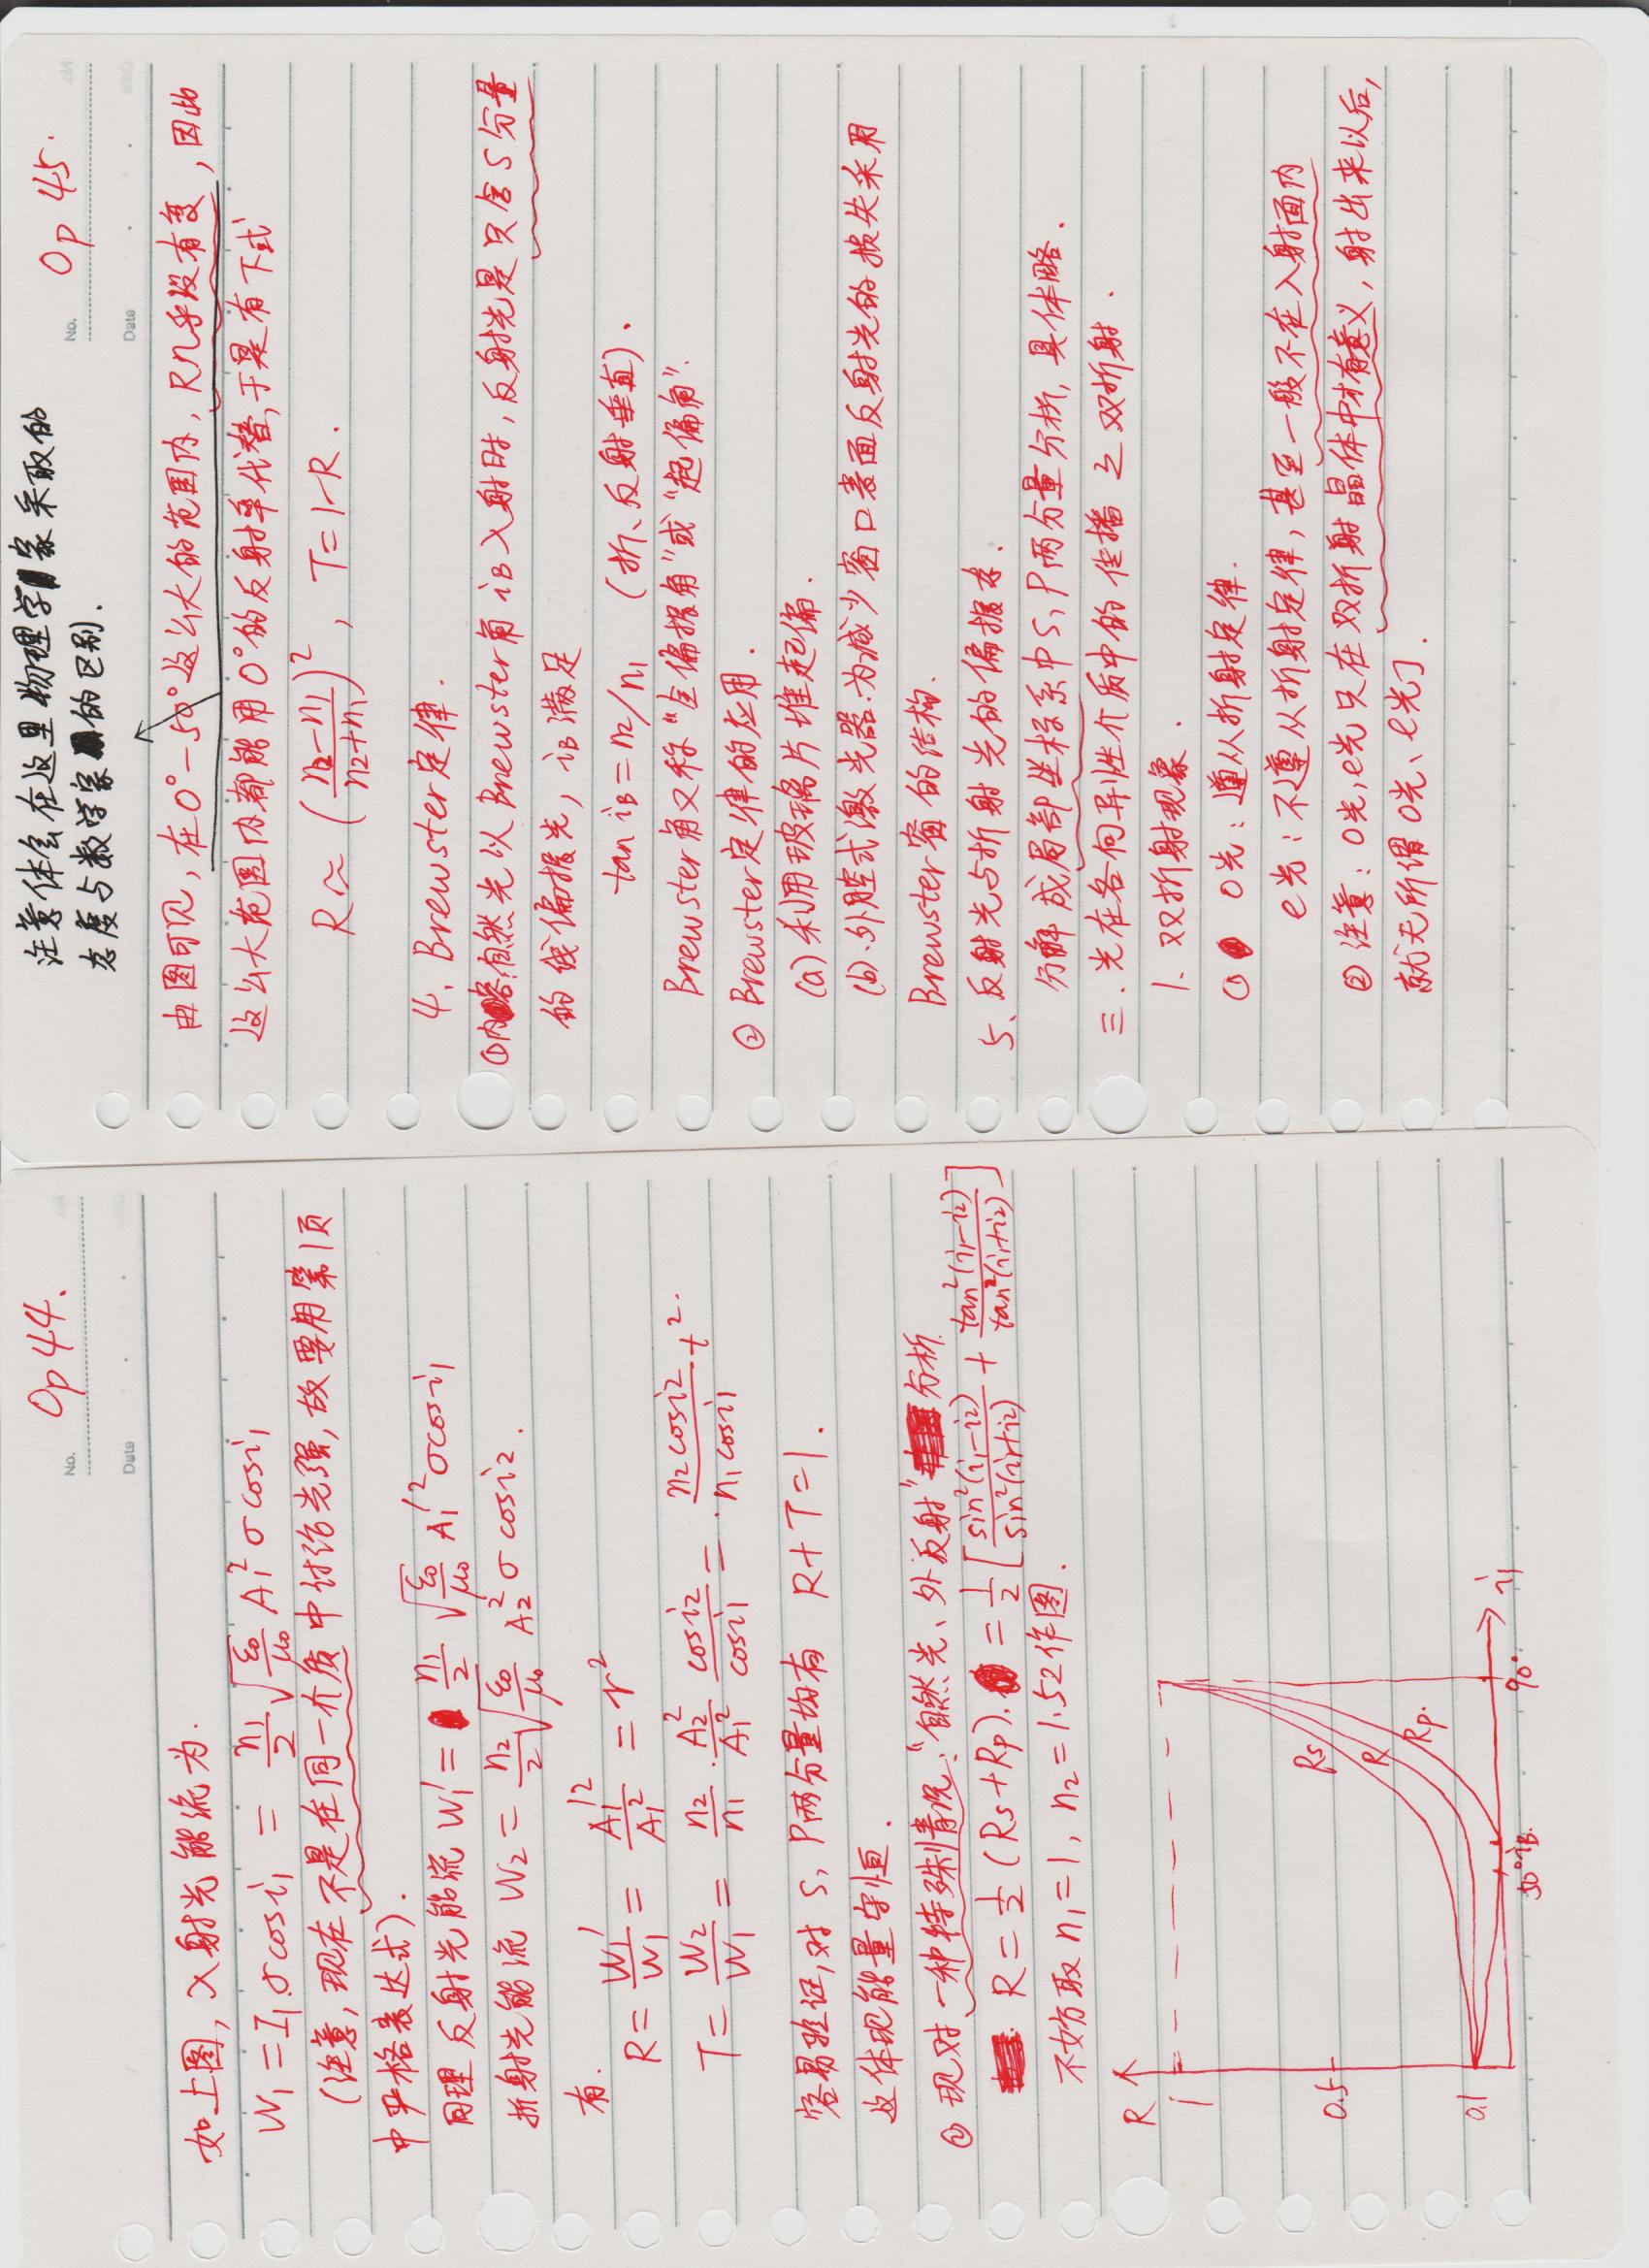 Op 44.
No.
Date
如上图, 入射光能流为.
W₁ = I₁σcosi₁ = n₁/2 √(ε₀/μ₀) A₁² σ cosi₁
(注意, 现在不是在同一介质中讨论光强, 故要用第1页
中严格表达式).
同理 反射光能流 W₁' = n₁/2 √(ε₀/μ₀) A₁'² σcosi₁
折射光能流 W₂ = n₂/2 √(ε₀/μ₀) A₂² σ cosi₂.
有.
R = W₁'/W₁ = A₁'²/A₁² = r²
T = W₂/W₁ = n₂/n₁ · A₂²/A₁² cosi₂/cosi₁ = n₂cosi₂/n₁cosi₁ t².
容易验证, 对 S, P两分量均有 R+T=1.
这体现能量守恒.
② 现对一种特殊情况: "自然光、外反射" 分析.
R = ½ (Rs+Rp). = ½ [sin²(i₁-i₂)/sin²(i₁+i₂) + tan²(i₁-i₂)/tan²(i₁+i₂)]
不妨取 n₁=1, n₂=1.52作图.
R
1
0.5
0.1
Rs
R
Rp.
50° iB.
90°
i₁
注意体会在这里物理学家采取的
态度与数学家的区别.
Op 45.
No.
Date
由图可见, 在0°-50°这么大的范围内, R几乎没有变, 因此
这么大范围内都能用0°的反射率代替, 于是有下式
R ≈ (n₂-n₁/n₂+n₁)², T=1-R.
4. Brewster定律.
①内容:自然光以Brewster角 iB入射时, 反射光是只含S分量
的线偏振光, iB满足
tan iB = n₂/n₁ (折、反射垂直).
Brewster角又称"全偏振角"或"起偏角".
② Brewster定律的应用.
(a) 利用玻璃片堆起偏.
(b). 外腔式激光器.为减少窗口表面反射光的损失采用
Brewster窗的结构.
5. 反射光与折射光的偏振态.
分解成局部坐标系中S, P两分量分析, 具体略.
三. 光在各向异性介质中的传播之双折射.
1. 双折射现象.
① O光: 遵从折射定律.
e光: 不遵从折射定律, 甚至一般不在入射面内
② 注意: O光, e光只在双折射晶体中才有意义, 射出来以后,
就无所谓O光、e光了.